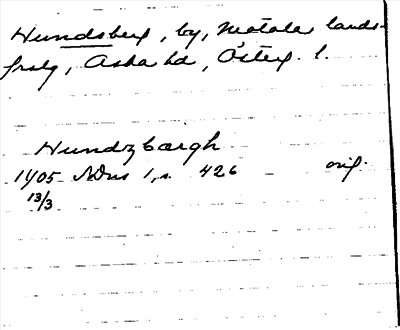 Hundsberg, by, Motala lands-
frslg, Aska hd, Östergl.
Hundzbærgh
1405 SDns 1, s. 426 orig.
13/3